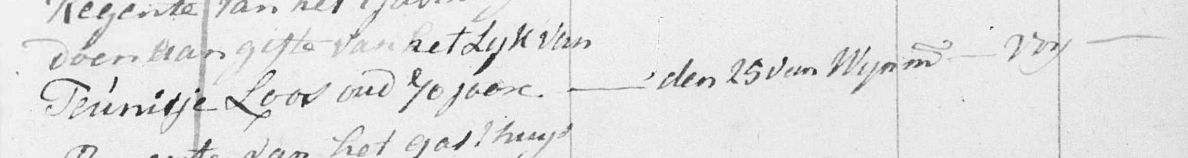 Regente van het
doen aan gifte van het Lijk van
Teunitje Loos oud 70 jaar. — den 25 van Wijnmd — vrij —
Regente van het gasthuijs